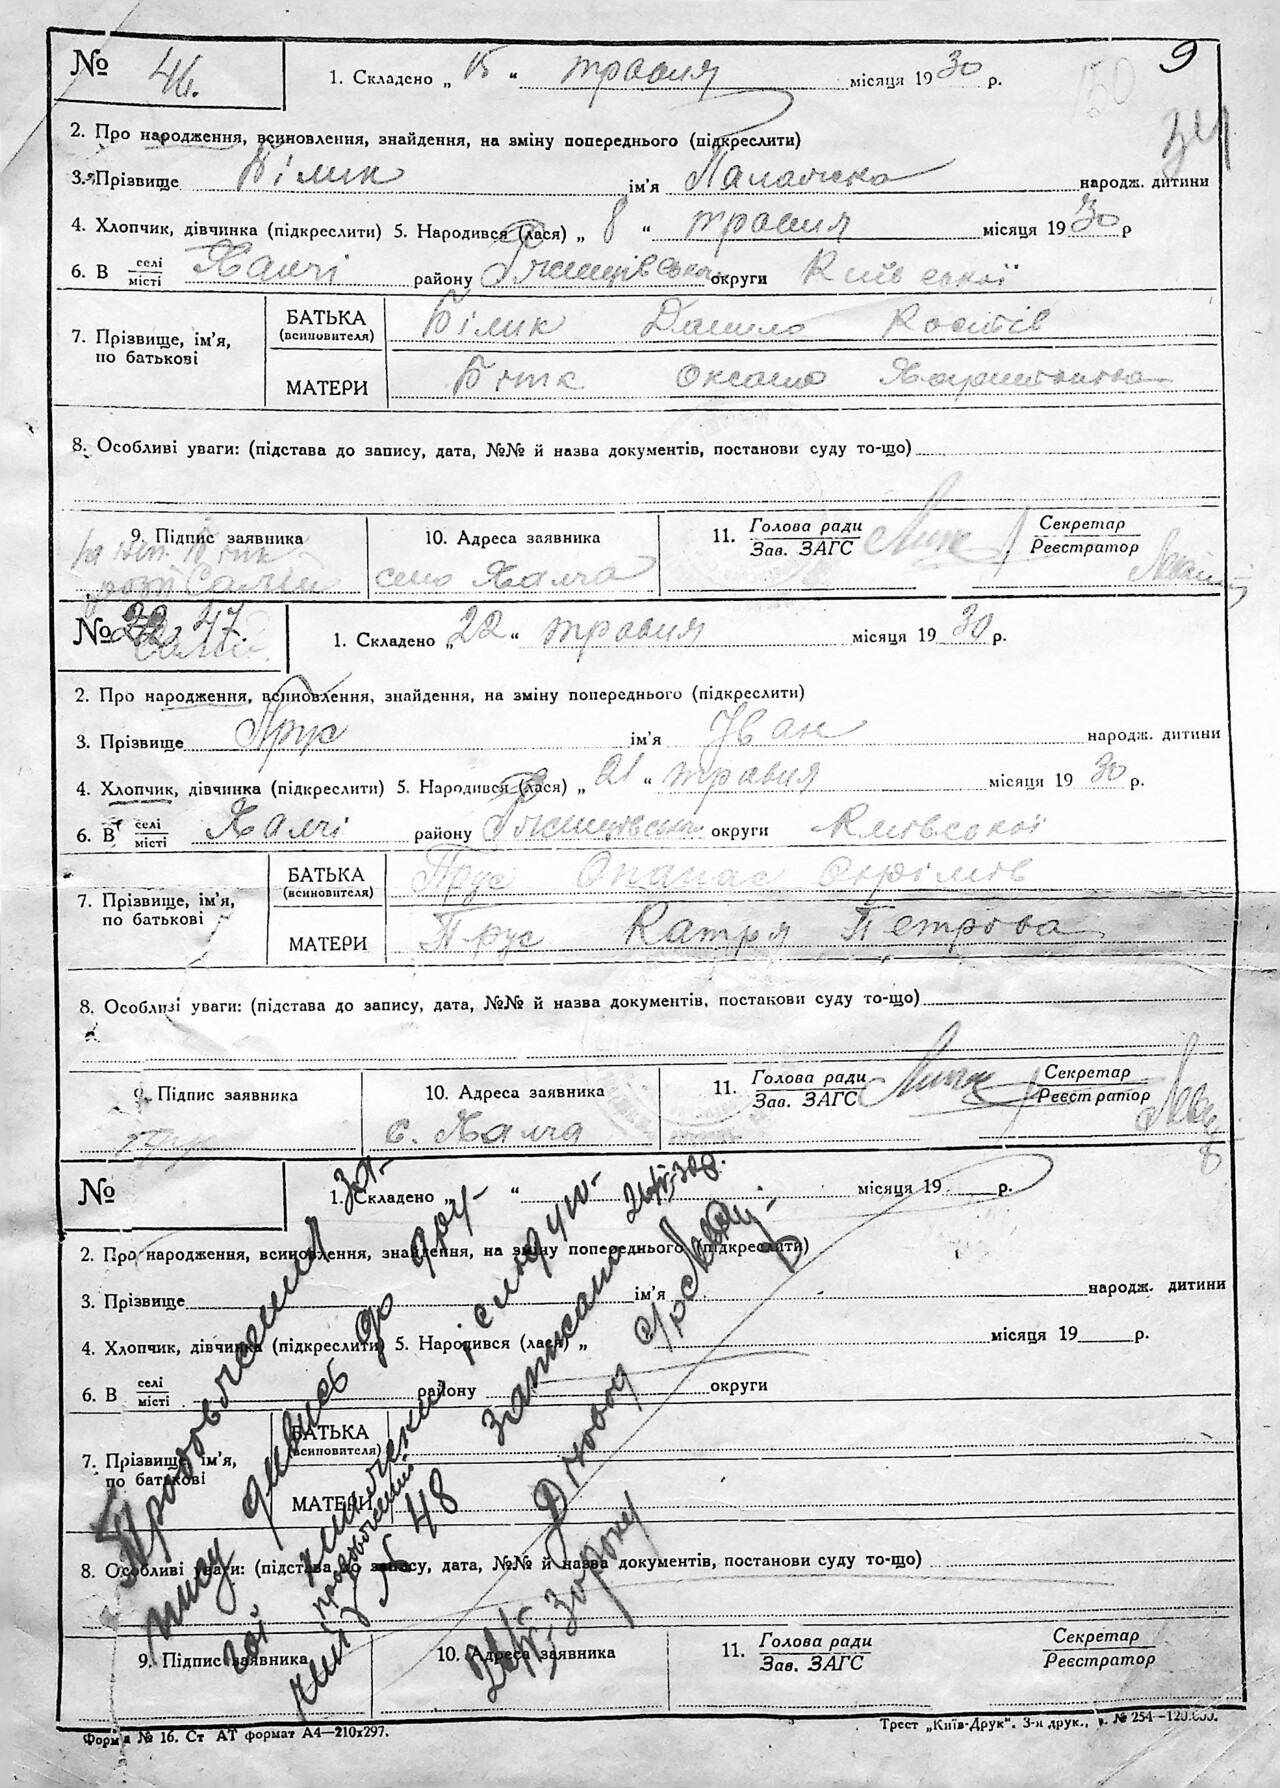 9
150
34
№ 46. 1. Складено „ 15 “ травня місяця 1930 р.
2. Про народження, всиновлення, знайдення, на зміну попереднього (підкреслити)
3. Прізвище Білик ім'я Палажка народж. дитини
4. Хлопчик, дівчинка (підкреслити) 5. Народився (лася) „ 8 “ травня місяця 1930 р
6. В селі місті Халчі району Ржищівська округи Київської
7. Прізвище, ім'я, по батькові
БАТЬКА (всиновителя) Білик Данило Костів
МАТЕРИ Білик Оксана
8. Особливі уваги: (підстава до запису, дата, №№ й назва документів, постанови суду то-що)
9. Підпис заявника 10. Адреса заявника 11. Голова ради Зав. ЗАГС Секретар Реєстратор
село Халча
№ 47. 1. Складено „ 22 “ травня місяця 1930 р.
2. Про народження, всиновлення, знайдення, на зміну попереднього (підкреслити)
3. Прізвище Прус ім'я Іван народж. дитини
4. Хлопчик, дівчинка (підкреслити) 5. Народився (лася) „ 21 “ травня місяця 1930 р.
6. В селі місті Халчі району Ржищівська округи Київської
7. Прізвище, ім'я, по батькові
БАТЬКА (всиновителя) Прус Опанас Юхимів
МАТЕРИ Прус Катря Петрова
8. Особливі уваги: (підстава до запису, дата, №№ й назва документів, постакови суду то-що)
9. Підпис заявника 10. Адреса заявника 11. Голова ради Зав. ЗАГС Секретар Реєстратор
Прус с. Халча
№ 1. Складено „ “ місяця 19 р.
2. Про народження, всиновлення, знайдення, на зміну попереднього (підкреслити)
3. Прізвище ім'я народж. дитини
4. Хлопчик, дівчинка (підкреслити) 5. Народився (лася) „ місяця 19 р.
6. В селі місті району округи
7. Прізвище, ім'я, по батькові
БАТЬКА (всиновителя)
МАТЕРИ
8. Особливі уваги: (підстава до запису, дата, №№ й назва документів, постанови суду то-що)
9. Підпис заявника 10. Адреса заявника 11. Голова ради Зав. ЗАГС Секретар Реєстратор
Продовження за-
пису дивись до дру-
гої книжки і слідую-
чий № 48 записано
Форма № 16. Ст АТ формат А4—210х297.
Трест „Київ-Друк“. 3-я друк., № 254—120.000.